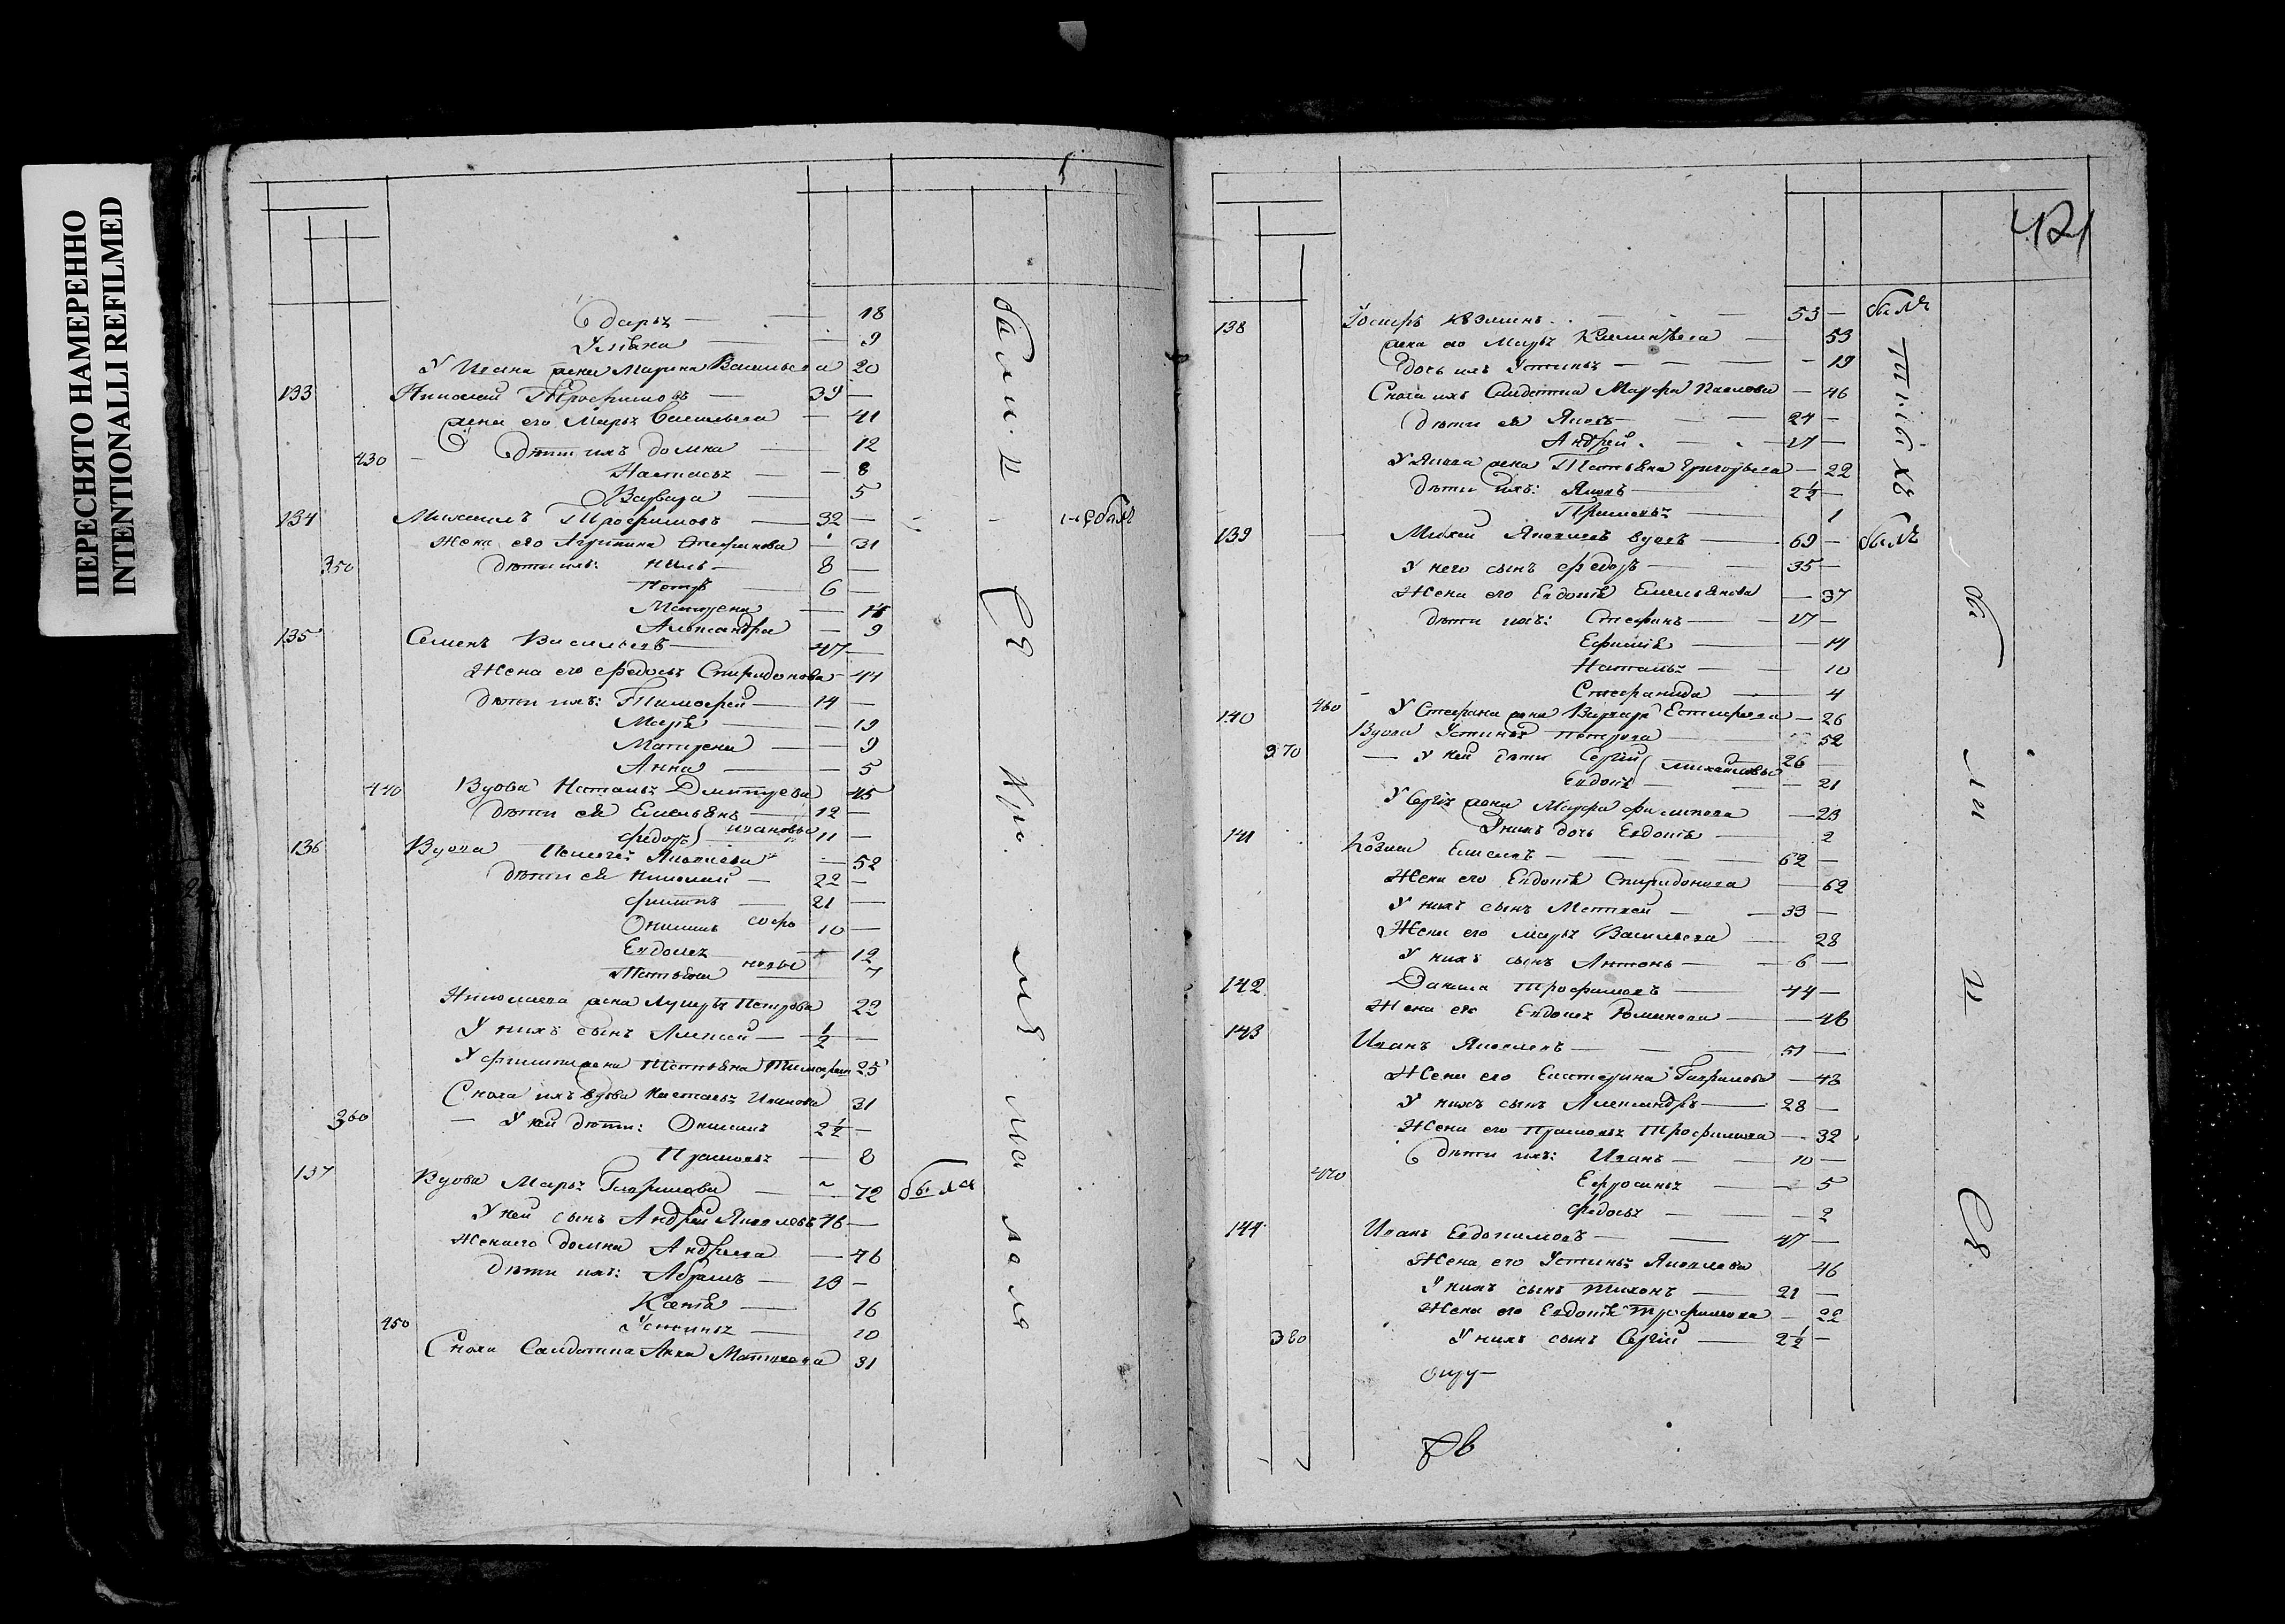 ПЕРЕСНЯТО НАМЕРЕННО
INTENTIONALLI REFILMED
Дарья — 18
Ульяна — 9
У Ивана жена Марина Васильева 20
133 Николай Трофимовъ — 39 —
жена его Марья Васильева — 41
430 — Дѣти ихъ Домна — 12
Настасья — 8
Варвара — 5
134 Михаилъ Трофимовъ — 32 —
Жена его Агрипина Стефанова — 31
350 Дѣти ихъ: Нилъ — 8 —
Петръ — 6 —
Матрена —
Александра — 9
135 Семенъ Васильевъ — 47 —
Жена его Федосья Спиридонова — 44
Дѣти ихъ: Тимофей — 14 —
Марья — 19
Матрена — 9
Анна — 5
440 Вдова Наталья Дмитрева 45
Дѣти ея Емельянъ — 12 —
Федоръ Ивановы 11 —
136 Вдова Яковлева — 52
Дѣти ея Николай — 22 —
Филипъ — 21 —
Онисимъ Софо 10 —
Евдокея — 12
Татьяна новы 7
Николаева жена Лукерья Петрова 22
У нихъ сынъ Алексей — 1/2 —
У Филипа жена Татьяна Тимофеев 25
Сноха ихъ вдова Настасья Иванова 31
360 — У ней дѣти: Онисимъ 2 1/2 —
Прасковья — 8
137 Вдова Марья Гаврилова — 72 была
У ней сынъ Андрей Яковлевъ 46 —
Жена его Домна Андреева — 46
Дѣти ихъ: Абрамъ — 13 —
Ксенья — 16
450 Устинья — 10
Сноха Салдатка Анна Матвеева 31
были
421
138 53 — былъ
жена его Марья — 53
дочь ихъ Устинья — 19
Сноха ихъ Салдатка Марфа Павлова — 46
Дѣти ея Яковъ — 24 —
Андрей — 17 —
У Якова жена Татьяна Григорьева — 22
Дѣти ихъ: Яковъ — 2 1/2 —
Прасковья — 1
139 Михей Яковлевъ вдовъ — 69 — былъ
У него сынъ Федоръ — 35 —
Жена его Евдокья Емельянова — 37
Дѣти ихъ: Стефанъ — 17 —
Ефимья — 14
Наталья — 10
Стефанида — 4
460 У Стефана жена Варвара Естифеева — 26
140 Вдова Устинья Петрова 52
370 — У ней дѣти Сергій Михайловы 26 —
Евдокья — 21
У Сергія жена Марфа Филипова — 23
У нихъ дочь Евдокья — 2
141 Козма — 62 —
Жена его Евдокья Спиридонова — 62
У нихъ сынъ Матвей — 33 —
Жена его Марья Васильева — 28
У нихъ сынъ Антонъ — 6 —
142 Данила Трофимовъ — 44 —
Жена его Евдокея — 46
143 Иванъ Яковлевъ — 51 —
Жена его Екатерина Гаврилова — 48
У нихъ сынъ Александръ — 28 —
Жена его Прасковья Трофимова — 32
Дѣти ихъ: Иванъ — 10 —
470 Ефросинья — 5
Федосья — 2
144 Иванъ Евдокимовъ — 47 —
Жена его Устинья Яковлева 46
У нихъ сынъ Тихонъ — 21 —
Жена его Евдокья Трофимова — 22
380 У нихъ сынъ Сергій — 2 1/2 —